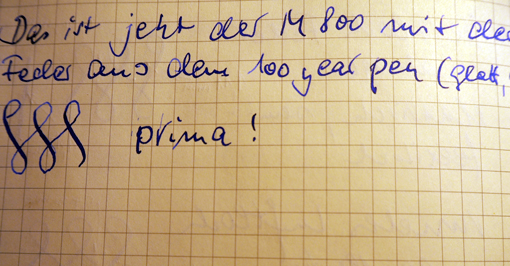 Das ist jetzt der M 800 mit der
Feder aus dem 100 year pen (glatt,
prima!